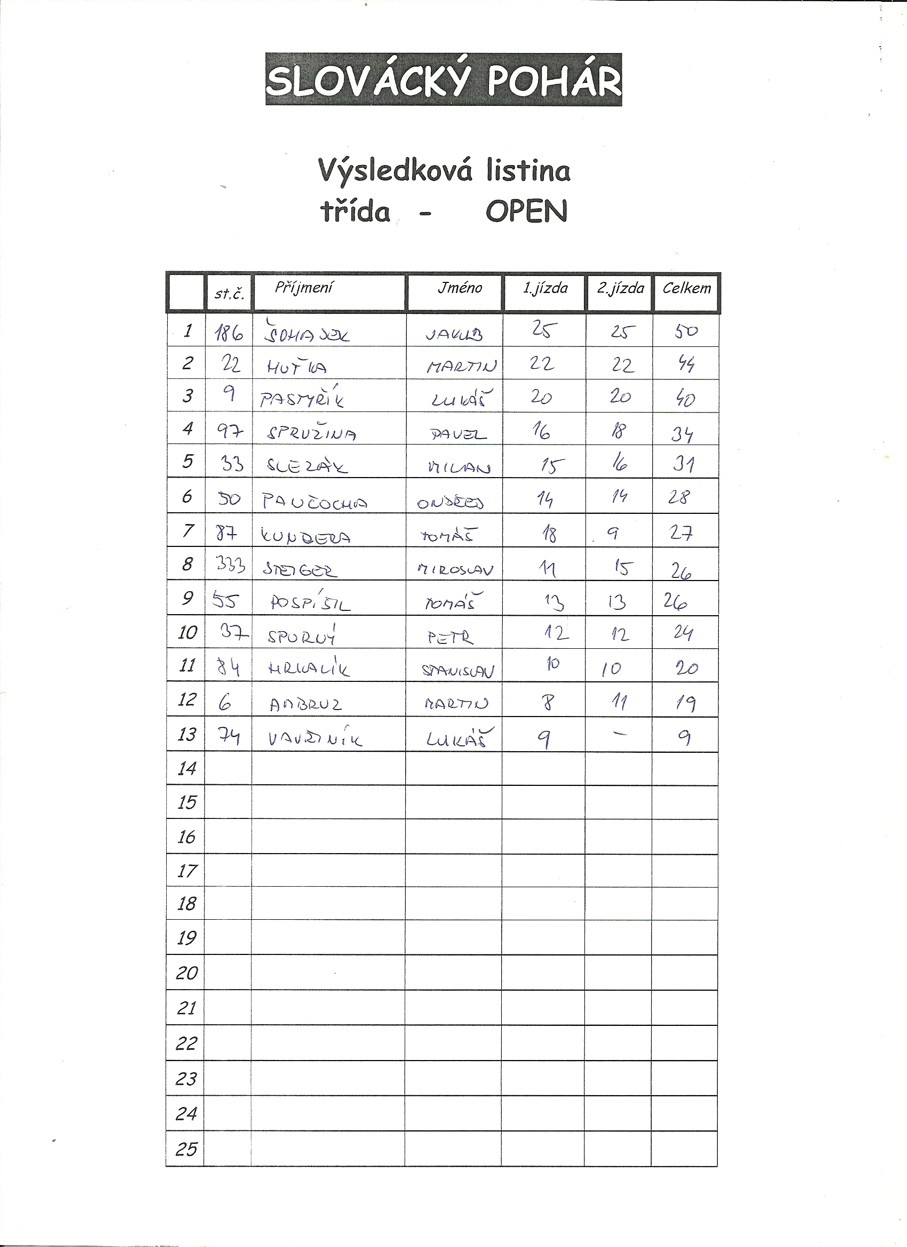 SLOVÁCKÝ POHÁR
Výsledková listina
třída - OPEN
st.č. Příjmení Jméno 1.jízda 2.jízda Celkem
1 186 JAKUB 25 25 50
2 22 HUŤKA MARTIN 22 22 44
3 9 PASTYŘÍK LUKÁŠ 20 20 40
4 97 SPRUŽINA PAVEL 16 18 34
5 33 SLEZÁK MILAN 15 16 31
6 50 PAUČOCHA ONDŘEJ 14 14 28
7 87 KUNDERA TOMÁŠ 18 9 27
8 333 STEIGER MIROSLAV 11 15 26
9 55 POSPÍŠIL TOMÁŠ 13 13 26
10 37 SPURNÝ PETR 12 12 24
11 84 HRKALÍK STANISLAV 10 10 20
12 6 AMBRUZ MARTIN 8 11 19
13 74 LUKÁŠ 9 - 9
14
15
16
17
18
19
20
21
22
23
24
25